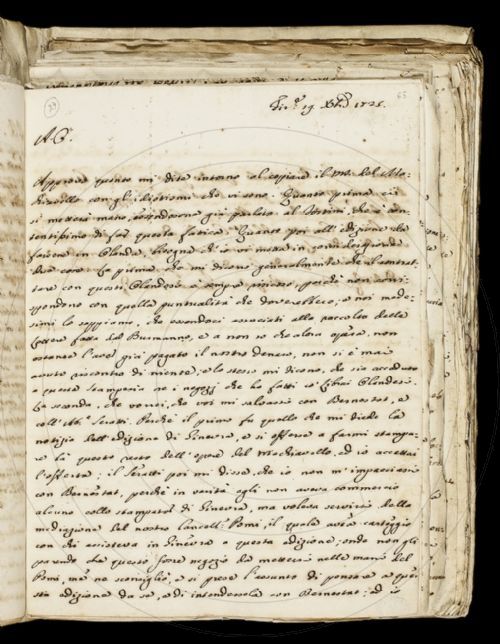 65
Fir.e 19. Xbre 1725.
A. C.
Approvo quanto mi dite intorno al copiare il ms. del Ma-
chiavello con gli che vi sono. Quanto prima ci
si metterà mano, essendone già parlato al che è con-
tentissimo di far questa fatica. Quanto poi all'edizione da
farsene in Olanda, bisogna ch'io vi metta in considerazione
due cose. La prima, che mi dicono generalmente che il contrat-
tare con questi Olandesi è sempre perchè non corri-
spondono con quella puntualità che dovrebbero, e noi mede-
simi lo sappiamo, che essendoci associati alla raccolta delle
Lettere fatta dal Burmanno, e a non so che altra opera, non
ostante l'aver già pagato il nostro denaro, non si è mai
avuto riscontro di niente, e lo stesso mi dicono, che sia accaduto
a questa Stamperia ne i negozi che ha fatti co' Librai Olandesi.
La seconda, che vorrei, che voi mi salvassi con Bernestat, e
coll'Ab.e Seratti. Perchè il primo fu quello che mi diede la
notizia dell'edizione di Ginevra, e si offerse a farmi stampa-
re là questo resto dell'opere del Machiavello, ed io accettai
l'offerta: il Seratti poi mi disse, che io non m'impacciassi
con Bernestat, perchè in verità egli non aveva commercio
alcuno collo stampator di Ginevra, ma voleva servirsi della
mediazione del nostro Cancell.e Pomi, il quale avea carteggio
con chi assisteva in Ginevra a questa edizione, onde non gli
parendo che questo fosse negozio da mettersi nelle mani del
Pomi, me ne sconsigliò, e si prese l'assunto di pensare a que-
sta edizione da se, e di intendersela con Bernestat; ed io